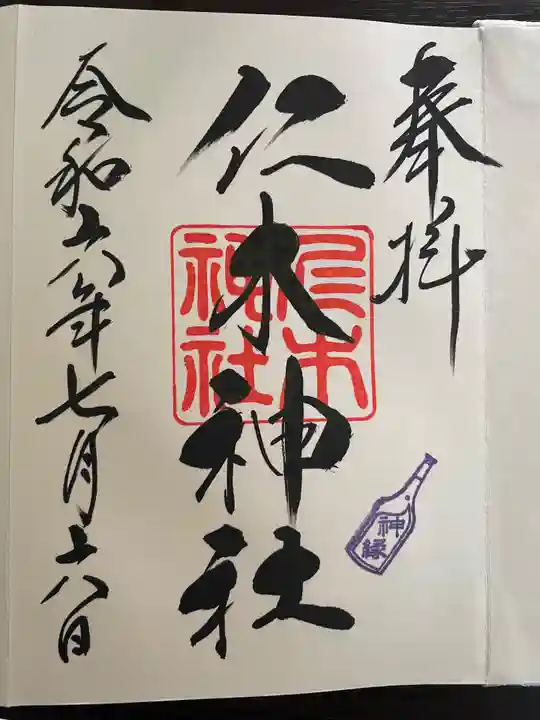 奉拝
仁木神社
仁木
神社
神縁
令和六年七月十八日